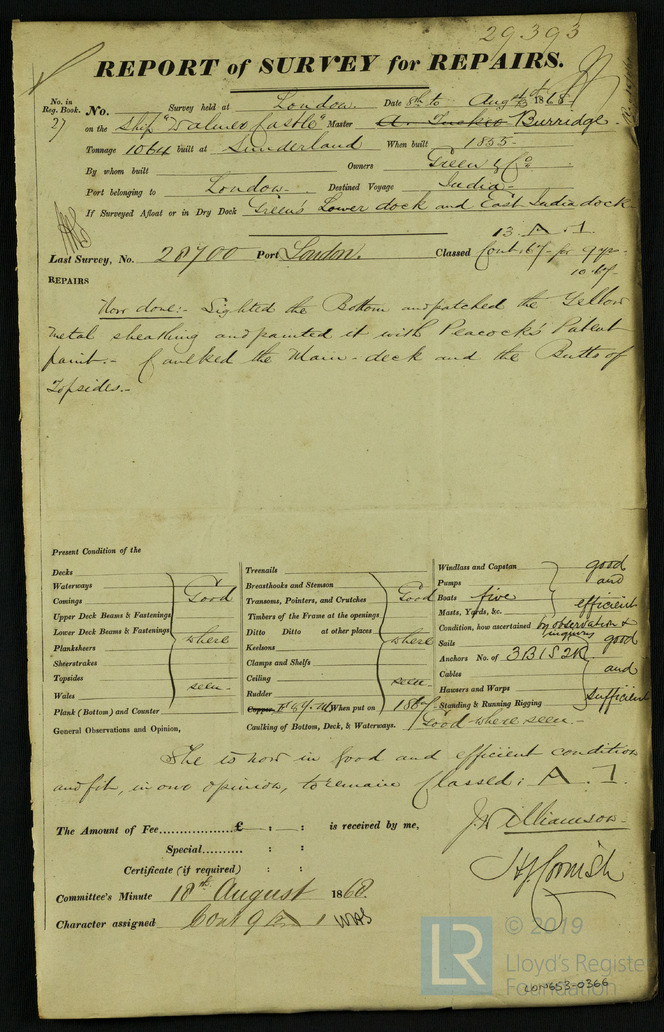 29393
REPORT of SURVEY for REPAIRS.
No. in Reg. Book. No. Survey held at London Date 8th to Augst 1868
27 on the Ship "Walmer Castle" Master Burridge
Tonnage 1064 built at Sunderland When built 1855
By whom built Owners Green & Co
Port belonging to London Destined Voyage India
If Surveyed Afloat or in Dry Dock Green's Lower dock and East India dock
13. A. 1.
Last Survey, No. 28700 Port London. Classed Cont. 67 for 9 yrs
10-67-
REPAIRS
Now done:- Sighted the Bottom and patched the Yellow
metal sheathing and painted it with Peacock's Patent
paint.- Caulked the Main-deck and the Butts of
Topsides.-
Present Condition of the
Decks
Waterways
Comings
Upper Deck Beams & Fastenings
Lower Deck Beams & Fastenings
Planksheers
Sheerstrakes
Topsides
Wales
Plank (Bottom) and Counter
Good where seen-
General Observations and Opinion,
Treenails
Breasthooks and Stemson
Transoms, Pointers, and Crutches
Timbers of the Frame at the openings
Ditto Ditto at other places
Keelsons
Clamps and Shelfs
Ceiling
Rudder
Good where seen
Copper When put on 1867-
Caulking of Bottom, Deck, & Waterways. Good where seen.-
Windlass and Capstan
Pumps
Boats five
Masts, Yards, &c.
good and efficient
Condition, how ascertained by observation & inquiry
Sails
Anchors No. of 3B1S2K
Cables
Hausers and Warps
Standing & Running Rigging
good and sufficient
She is now in good and efficient condition
and fit, in our opinion, to remain Classed: A. 1.
The Amount of Fee £ : : is received by me,
Special : :
Certificate (if required) : :
J. Williamson
H. J. Cornish
Committee's Minute 18th August 1868.
Character assigned Cont 9 A 1
LR
© 2019
Lloyd's Register
Foundation
LON653-0366